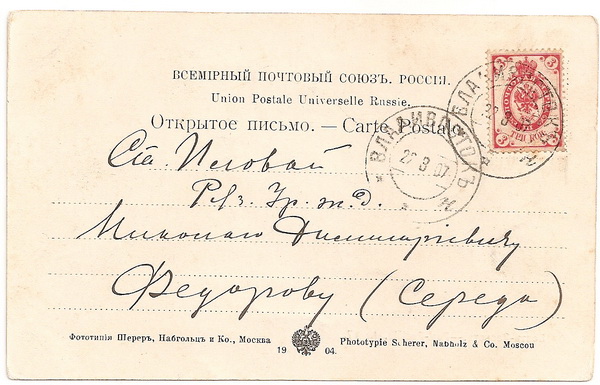 ВСЕМІРНЫЙ ПОЧТОВЫЙ СОЮЗЪ. РОССІЯ.
Union Postale Universelle Russie.
Открытое письмо. — Carte Postale
3 3
ТРИ КОП.
ВЛАДИВОСТОКЪ
ВЛАДИВОСТОКЪ
26 3 07
Ст.
Николаю Дмитріевичу
Федорову (Середа)
Фототипія Шереръ, Набгольцъ и Ко., Москва
1904.
Phototypie Scherer, Nabholz & Co. Moscou